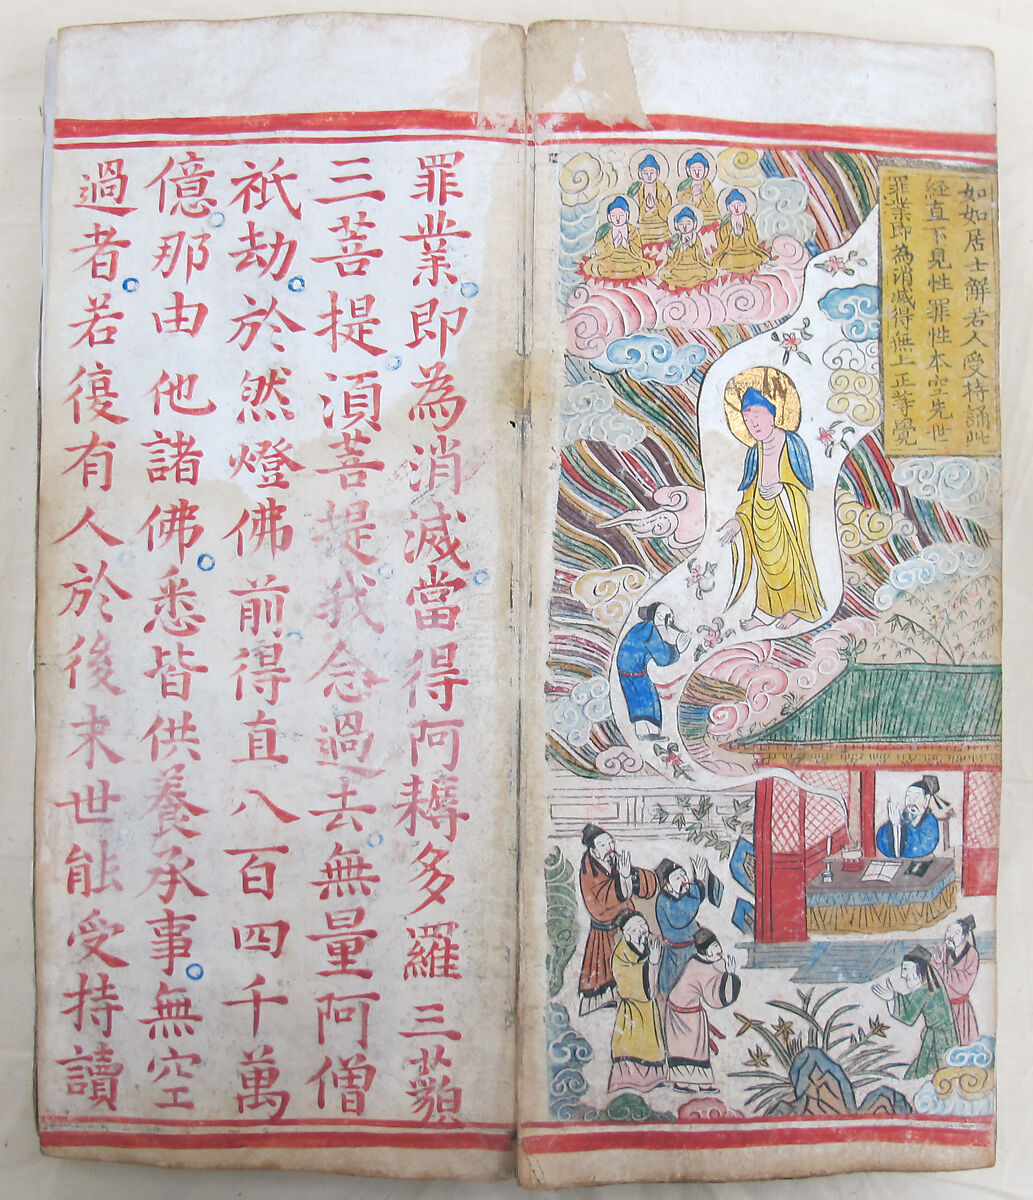 如如居士解若人受持誦此
經直下見性罪性本空先世
罪業即為消滅得無上正等覺
罪業即為消滅當得阿耨多羅三藐
三菩提湏菩提我念過去無量阿僧
祇劫於然燈佛前得直八百四千萬
億那由他諸佛悉皆供養承事無空
過者若復有人於後末世能受持讀